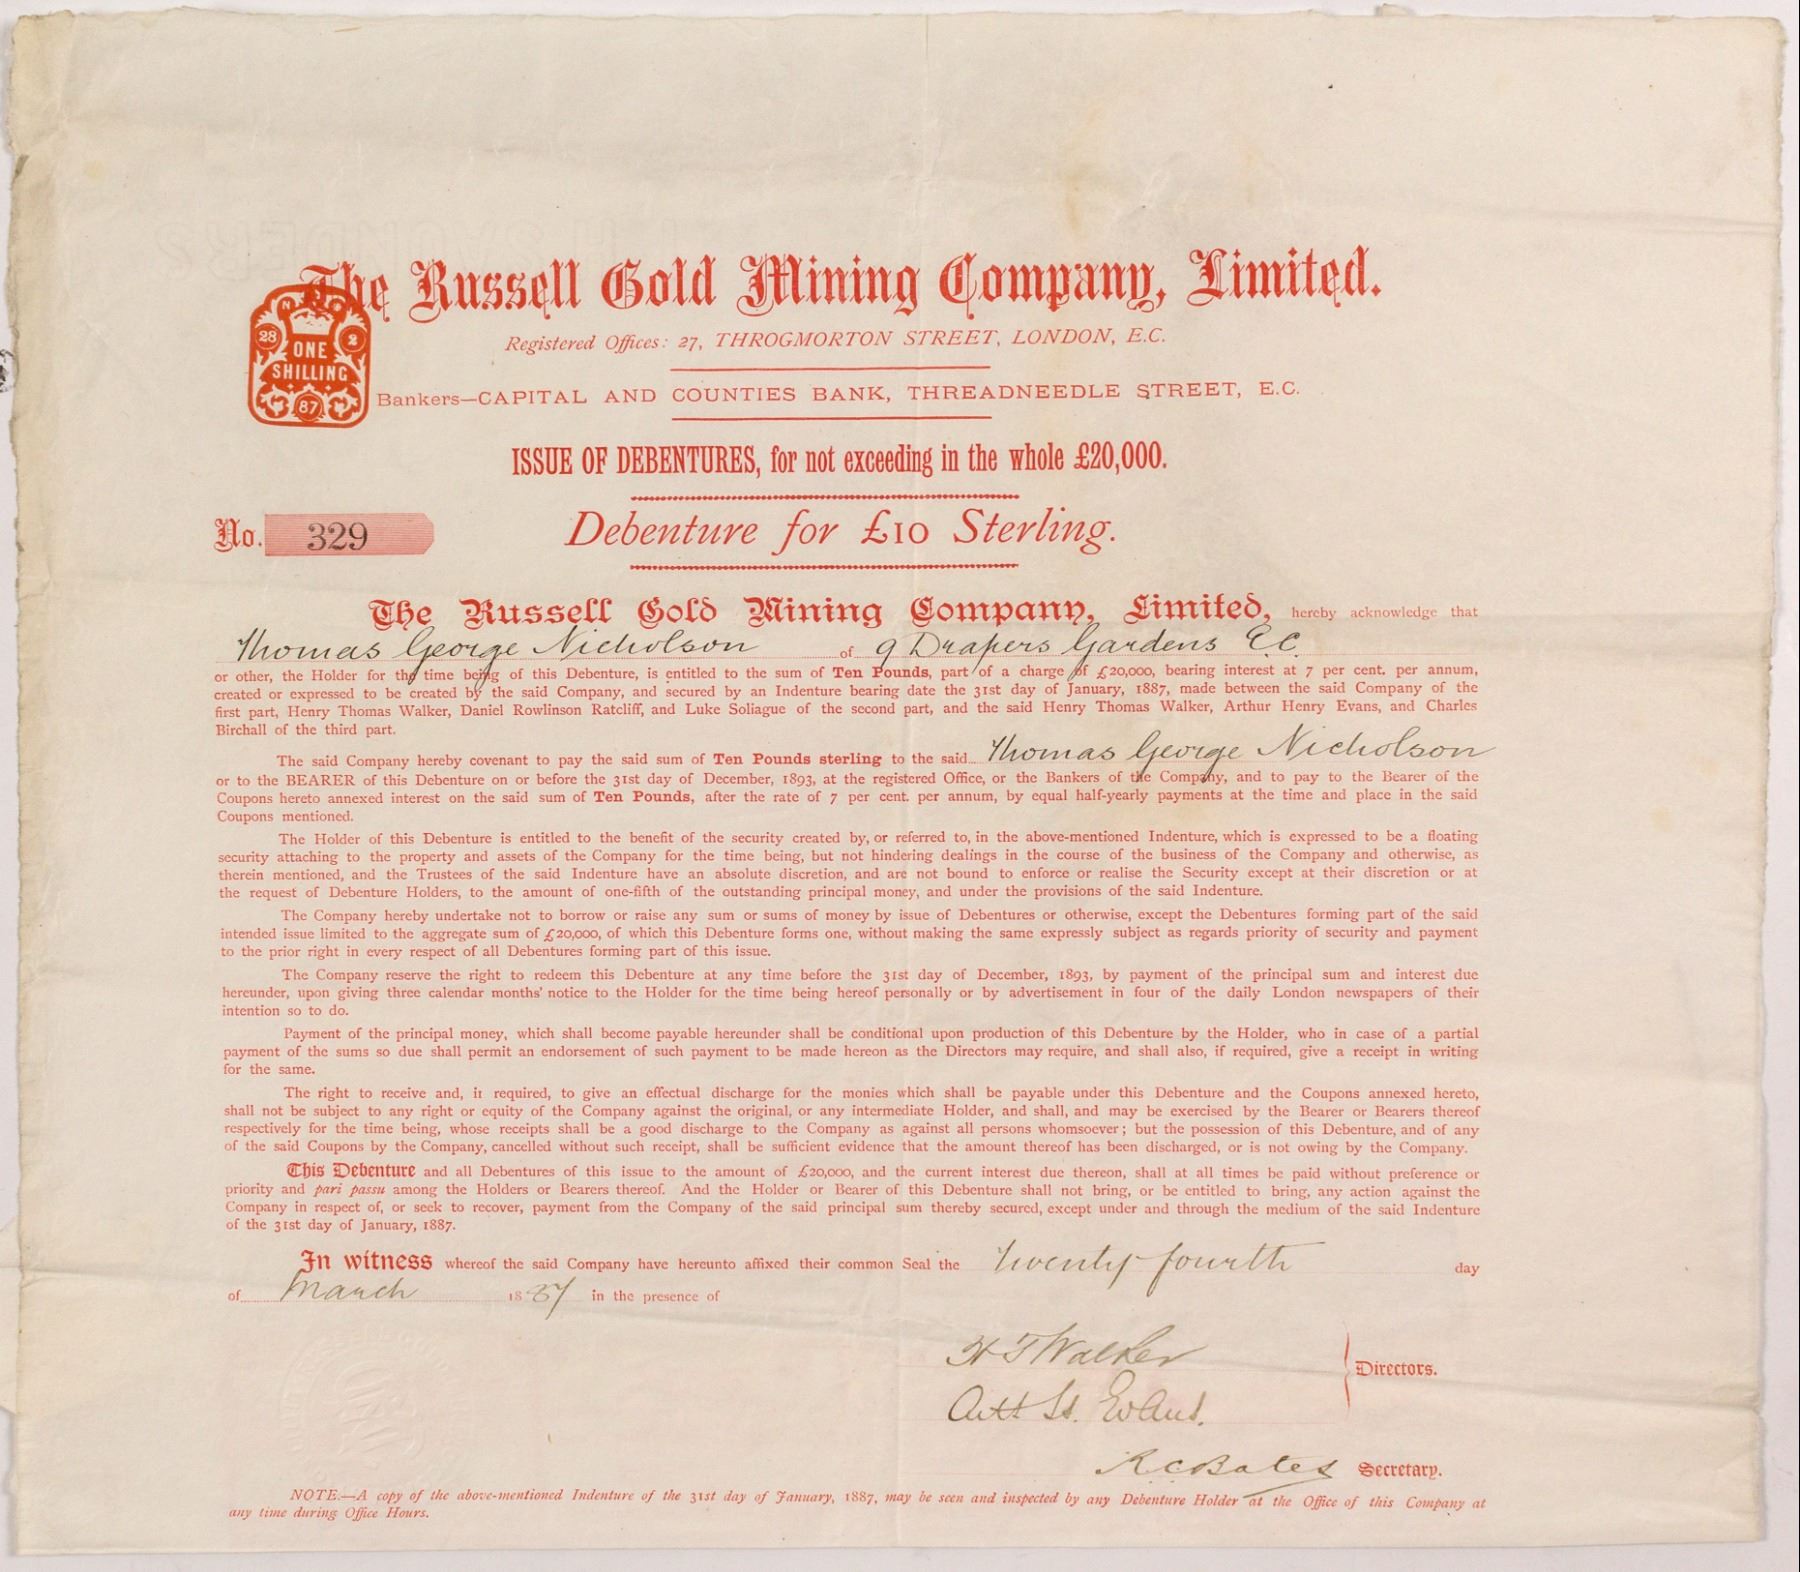 The Russell Gold Mining Company, Limited.
Registered Offices: 27, THROGMORTON STREET, LONDON, E.C.
28 2
ONE
SHILLING
87
Bankers—CAPITAL AND COUNTIES BANK, THREADNEEDLE STREET, E.C.
ISSUE OF DEBENTURES, for not exceeding in the whole £20,000.
No. 329
Debenture for £10 Sterling.
The Russell Gold Mining Company, Limited, hereby acknowledge that
Thomas George Nicholson of 9 Drapers Gardens E.C.
or other, the Holder for the time being of this Debenture, is entitled to the sum of Ten Pounds, part of a charge of £20,000, bearing interest at 7 per cent. per annum,
created or expressed to be created by the said Company, and secured by an Indenture bearing date the 31st day of January, 1887, made between the said Company of the
first part, Henry Thomas Walker, Daniel Rowlinson Ratcliff, and Luke Soliague of the second part, and the said Henry Thomas Walker, Arthur Henry Evans, and Charles
Birchall of the third part.
The said Company hereby covenant to pay the said sum of Ten Pounds sterling to the said Thomas George Nicholson
or to the BEARER of this Debenture on or before the 31st day of December, 1893, at the registered Office, or the Bankers of the Company, and to pay to the Bearer of the
Coupons hereto annexed interest on the said sum of Ten Pounds, after the rate of 7 per cent. per annum, by equal half-yearly payments at the time and place in the said
Coupons mentioned.
The Holder of this Debenture is entitled to the benefit of the security created by, or referred to, in the above-mentioned Indenture, which is expressed to be a floating
security attaching to the property and assets of the Company for the time being, but not hindering dealings in the course of the business of the Company and otherwise, as
therein mentioned, and the Trustees of the said Indenture have an absolute discretion, and are not bound to enforce or realise the Security except at their discretion or at
the request of Debenture Holders, to the amount of one-fifth of the outstanding principal money, and under the provisions of the said Indenture.
The Company hereby undertake not to borrow or raise any sum or sums of money by issue of Debentures or otherwise, except the Debentures forming part of the said
intended issue limited to the aggregate sum of £20,000, of which this Debenture forms one, without making the same expressly subject as regards priority of security and payment
to the prior right in every respect of all Debentures forming part of this issue.
The Company reserve the right to redeem this Debenture at any time before the 31st day of December, 1893, by payment of the principal sum and interest due
hereunder, upon giving three calendar months' notice to the Holder for the time being hereof personally or by advertisement in four of the daily London newspapers of their
intention so to do.
Payment of the principal money, which shall become payable hereunder shall be conditional upon production of this Debenture by the Holder, who in case of a partial
payment of the sums so due shall permit an endorsement of such payment to be made hereon as the Directors may require, and shall also, if required, give a receipt in writing
for the same.
The right to receive and, if required, to give an effectual discharge for the monies which shall be payable under this Debenture and the Coupons annexed hereto,
shall not be subject to any right or equity of the Company against the original, or any intermediate Holder, and shall, and may be exercised by the Bearer or Bearers thereof
respectively for the time being, whose receipts shall be a good discharge to the Company as against all persons whomsoever; but the possession of this Debenture, and of any
of the said Coupons by the Company, cancelled without such receipt, shall be sufficient evidence that the amount thereof has been discharged, or is not owing by the Company.
This Debenture and all Debentures of this issue to the amount of £20,000, and the current interest due thereon, shall at all times be paid without preference or
priority and pari passu among the Holders or Bearers thereof. And the Holder or Bearer of this Debenture shall not bring, or be entitled to bring, any action against the
Company in respect of, or seek to recover, payment from the Company of the said principal sum thereby secured, except under and through the medium of the said Indenture
of the 31st day of January, 1887.
In witness whereof the said Company have hereunto affixed their common Seal the Twenty fourth day
of March 1887 in the presence of
H T Walker
Directors.
Arth H. Evans.
R C Bates Secretary.
NOTE.—A copy of the above-mentioned Indenture of the 31st day of January, 1887, may be seen and inspected by any Debenture Holder at the Office of this Company at
any time during Office Hours.